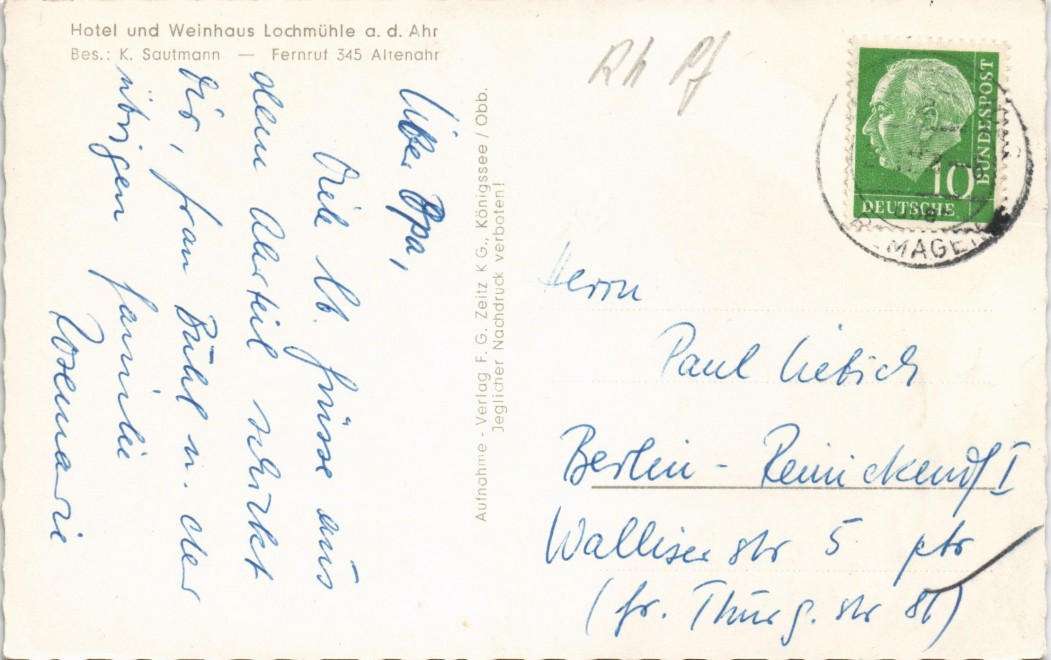 Hotel und Weinhaus Lochmühle a. d. Ahr
Bes.: K. Sautmann — Fernruf 345 Altenahr
Lieber Opa,
Viele lb. Grüsse aus
dem Ahrteil schickt
Dir, Frau Buhl u. der
übrigen Familie
Rosemarie
Aufnahme - Verlag F. G. Zeitz K G., Königssee / Obb.
Jeglicher Nachdruck verboten!
Rh Pf
DEUTSCHE BUNDESPOST
10
Herrn
Paul Liebich
Berlin - Reinickendf I
Walliser Str 5 ptr
(fr. Thürg. Str 86)